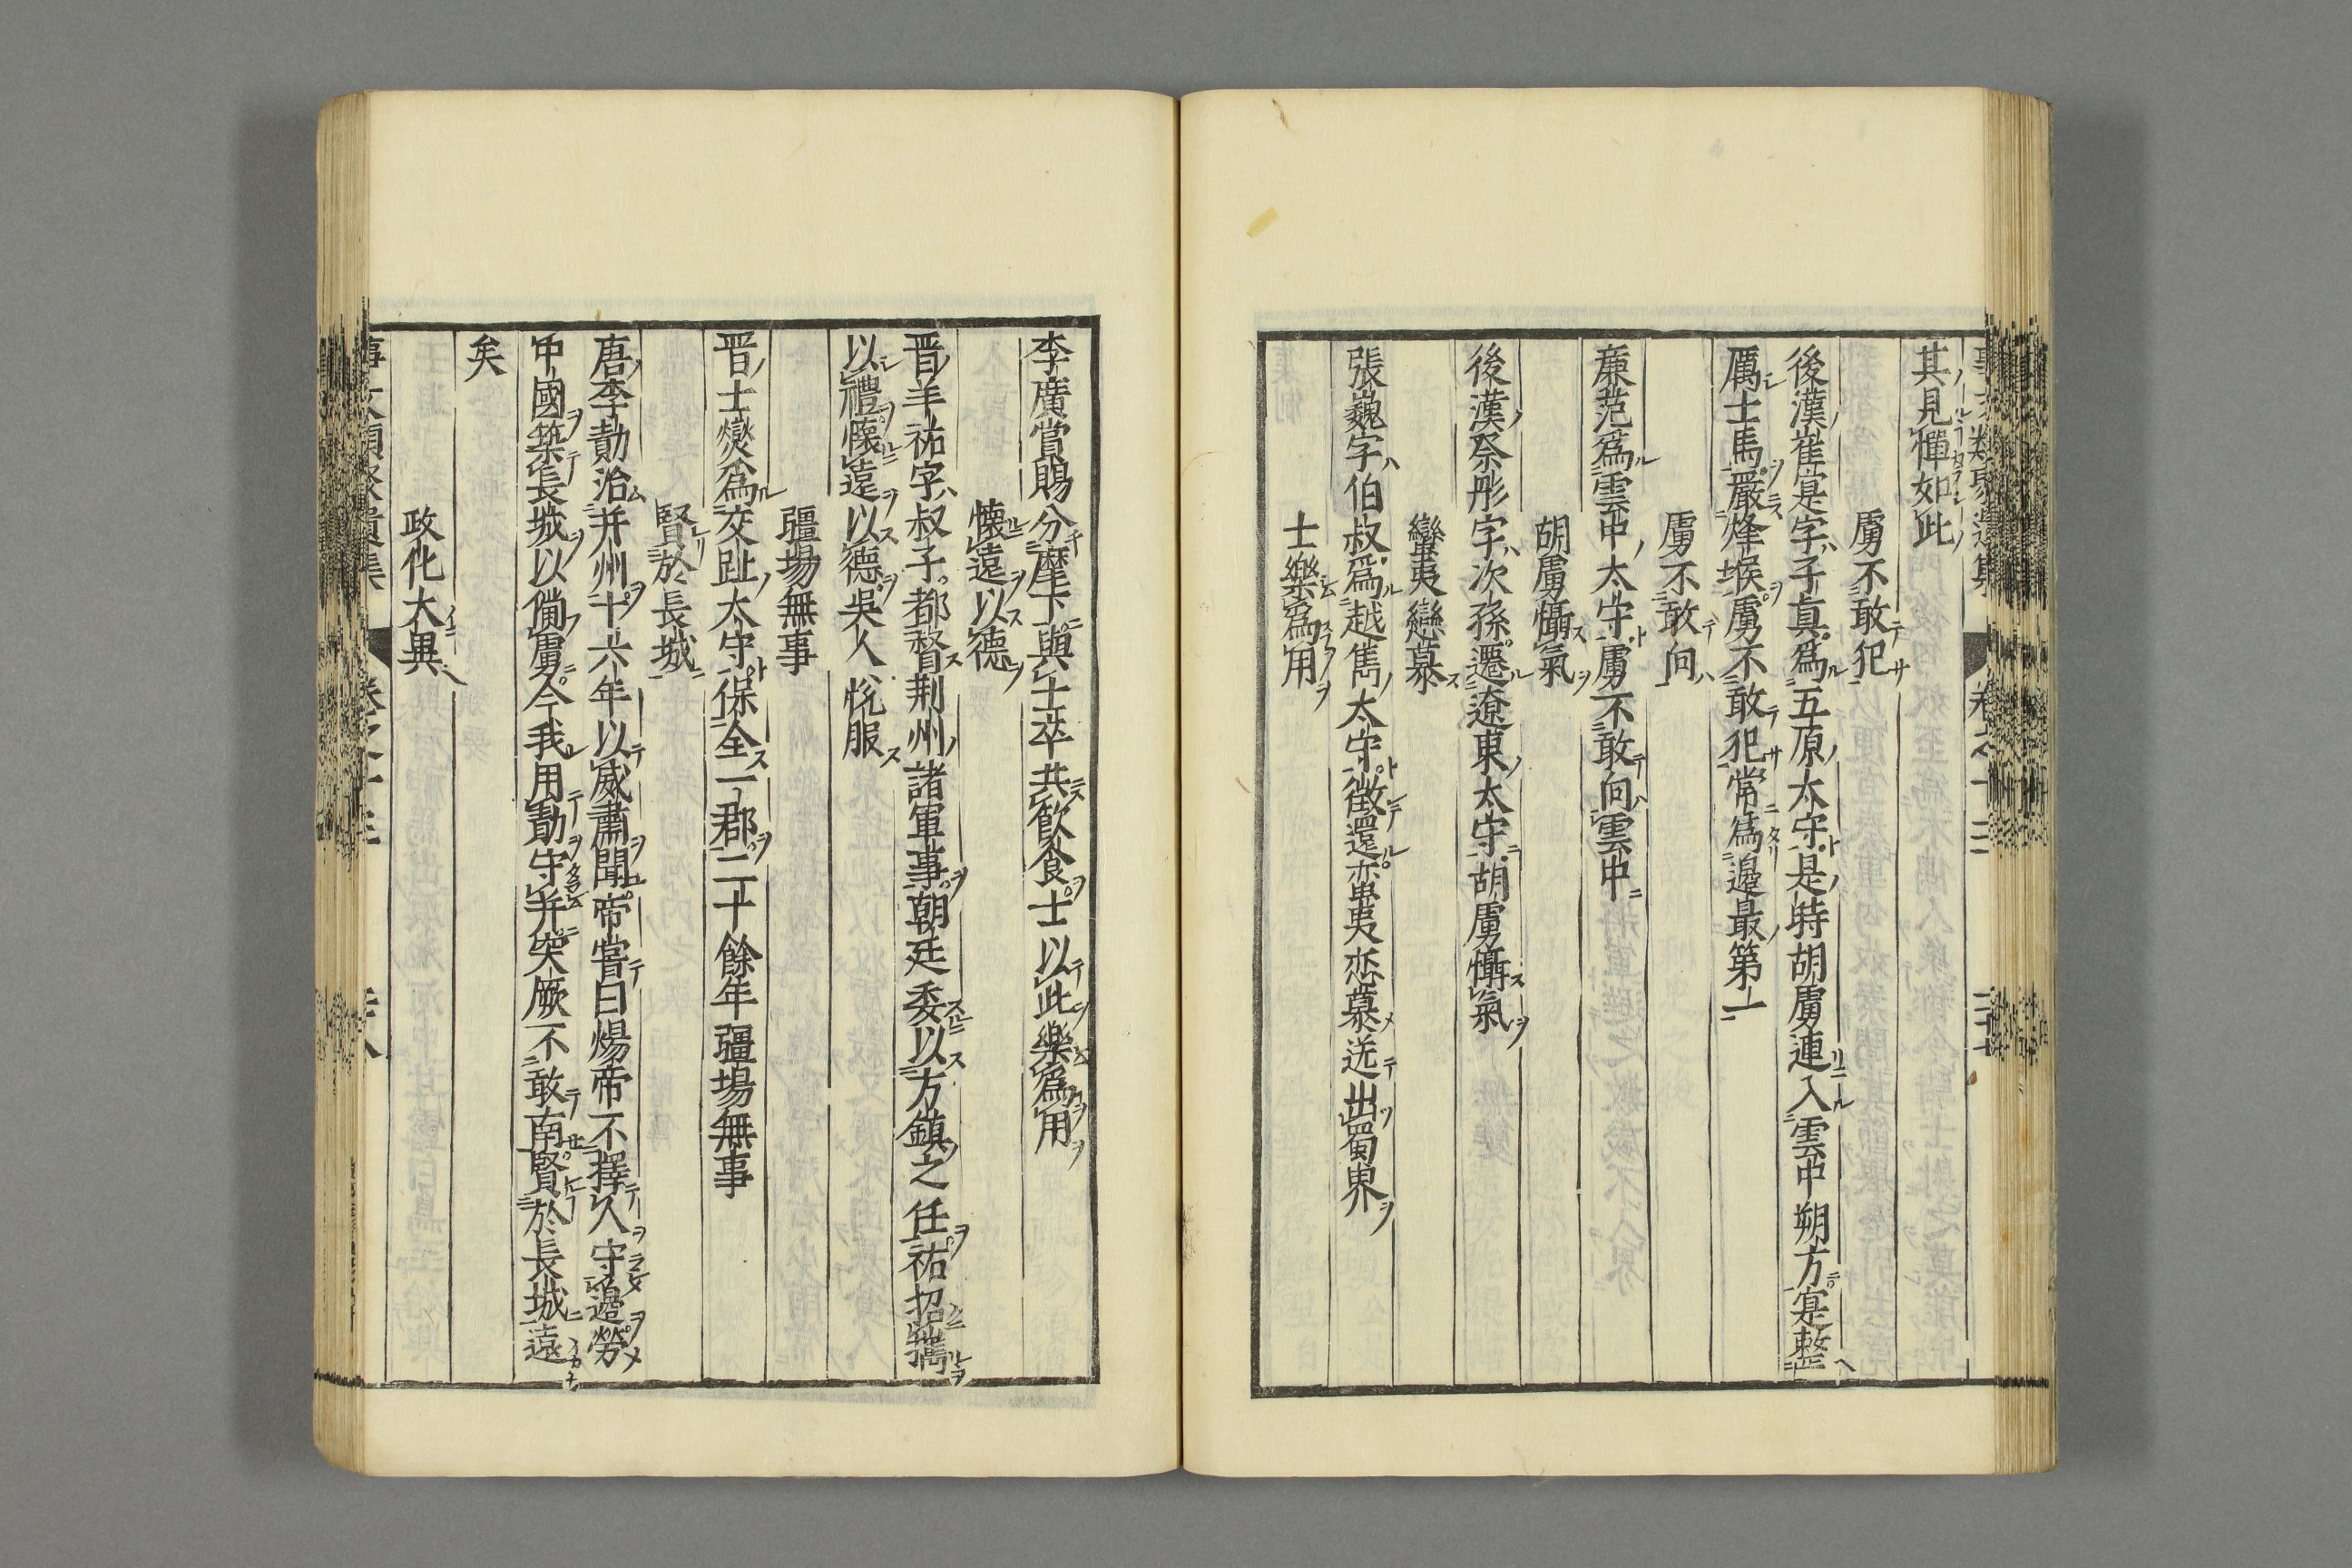 其見憚如此
虜不敢犯
後漢崔寔字子真爲五原太守是時胡虜連入雲中朔方寔整
厲士馬嚴烽堠虜不敢犯常爲邊最第一
虜不敢向
廉范爲雲中太守虜不敢向雲中
胡虜懾氣
後漢祭肜字次孫遷遼東太守胡虜懾氣
蠻夷戀慕
張巍字伯叔爲越雋太守徵還蛮夷恋慕送出蜀界
士樂爲用
李廣賞賜分麾下與士卒共飲食士以此樂爲用
懐遠以德
晋羊祐字叔子都督荆州諸軍事朝廷委以方鎮之任祐招携
以禮懐遠以德吳人悅服
疆場無事
晋士燮爲交趾太守保全一郡二十餘年疆場無事
賢於長城
唐李勣治并州十六年以威肅聞帝嘗曰煬帝不擇人守邊勞
中國築長城以備虜今我用勣守并突厥不敢南賢於長城遠
矣
政化大異